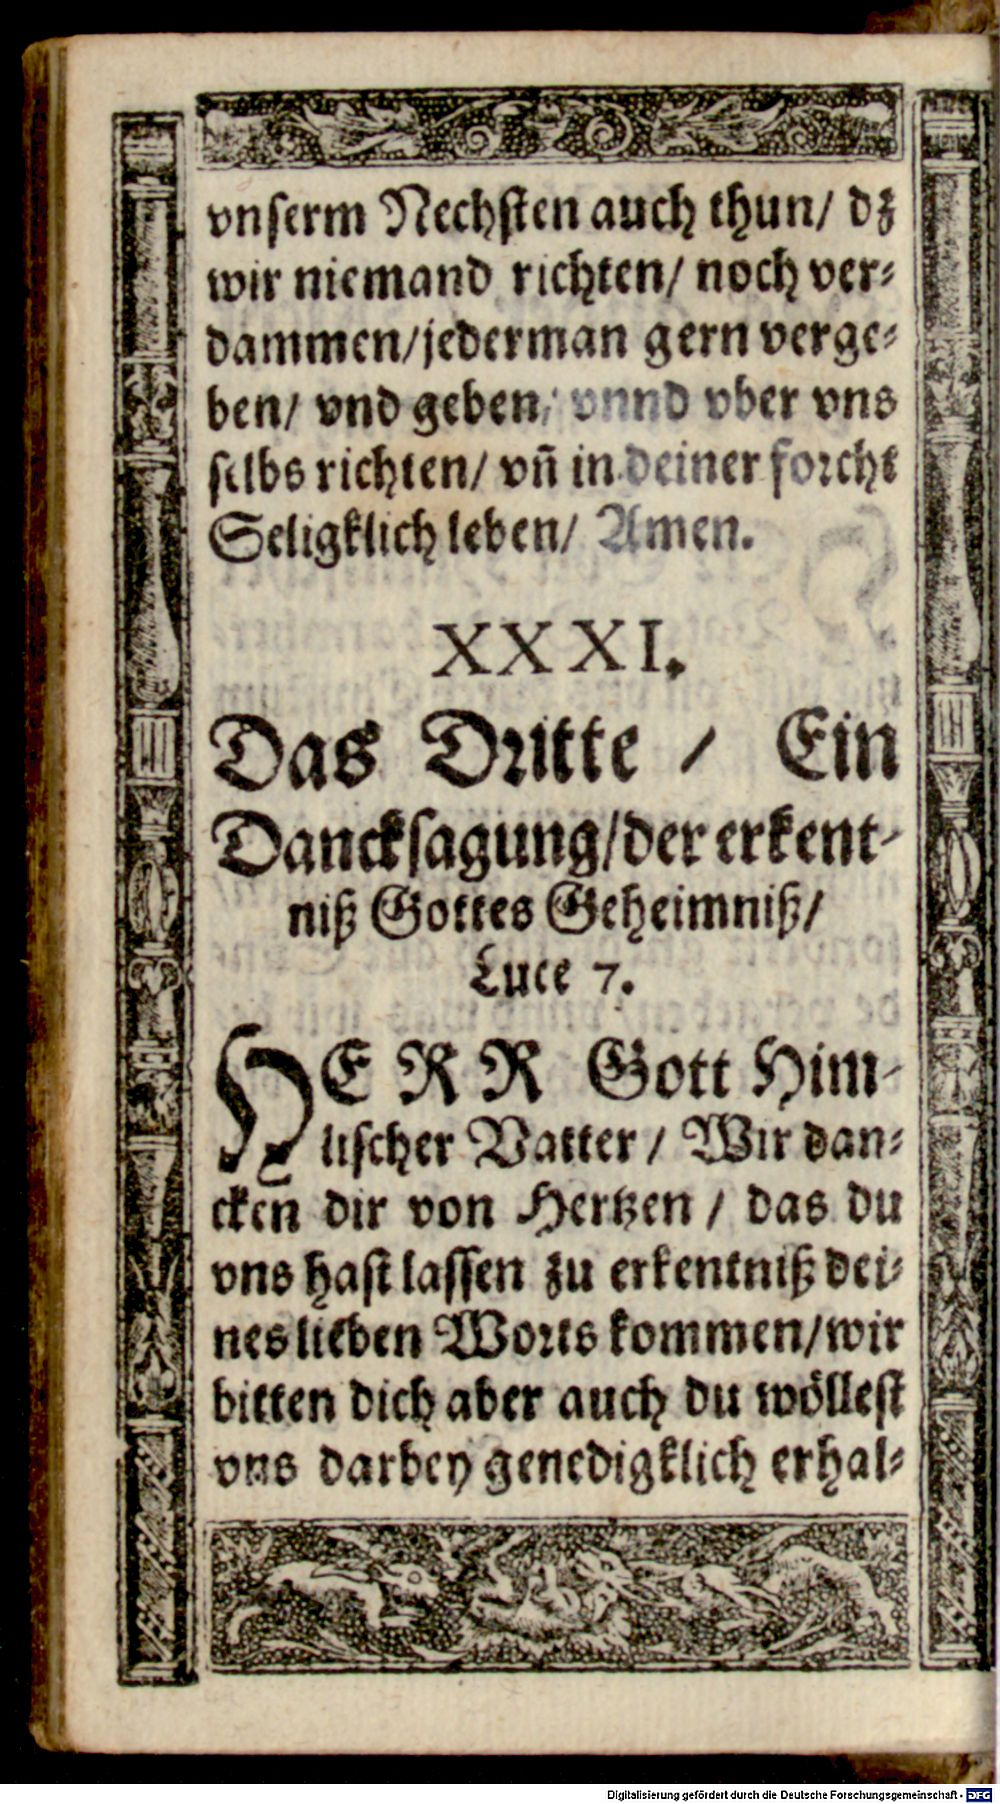 vnserm Nechsten auch thun/ dz
wir niemand richten/ noch ver-
dammen/jederman gern verge-
ben/ vnd geben/ vnnd vber vns
selbs richten/ vñ in deiner forcht
Seligklich leben/ Amen.
XXXI.
Das Dritte / Ein
Dancksagung/der erkent-
niß Gottes Geheimniß/
Luce 7.
HERR Gott Him-
lischer Vatter / Wir dan-
cken dir von Hertzen / das du
vns hast lassen zu erkentniß dei-
nes lieben Worts kommen/wir
bitten dich aber auch du wöllest
vns darbey genedigklich erhal-
Digitalisierung gefördert durch die Deutsche Forschungsgemeinschaft - DFG